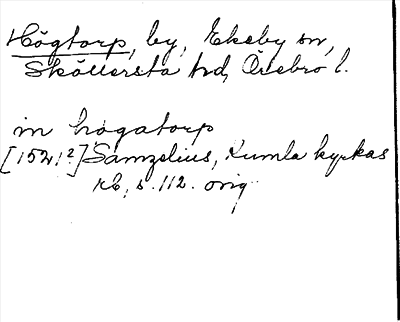 Högtorp, by, Ekeby sn,
Sköllersta hd, Örebro l.
in högatorp
[152.?] Samzelius, Kumla kyrkas
rb, s. 112. orig.